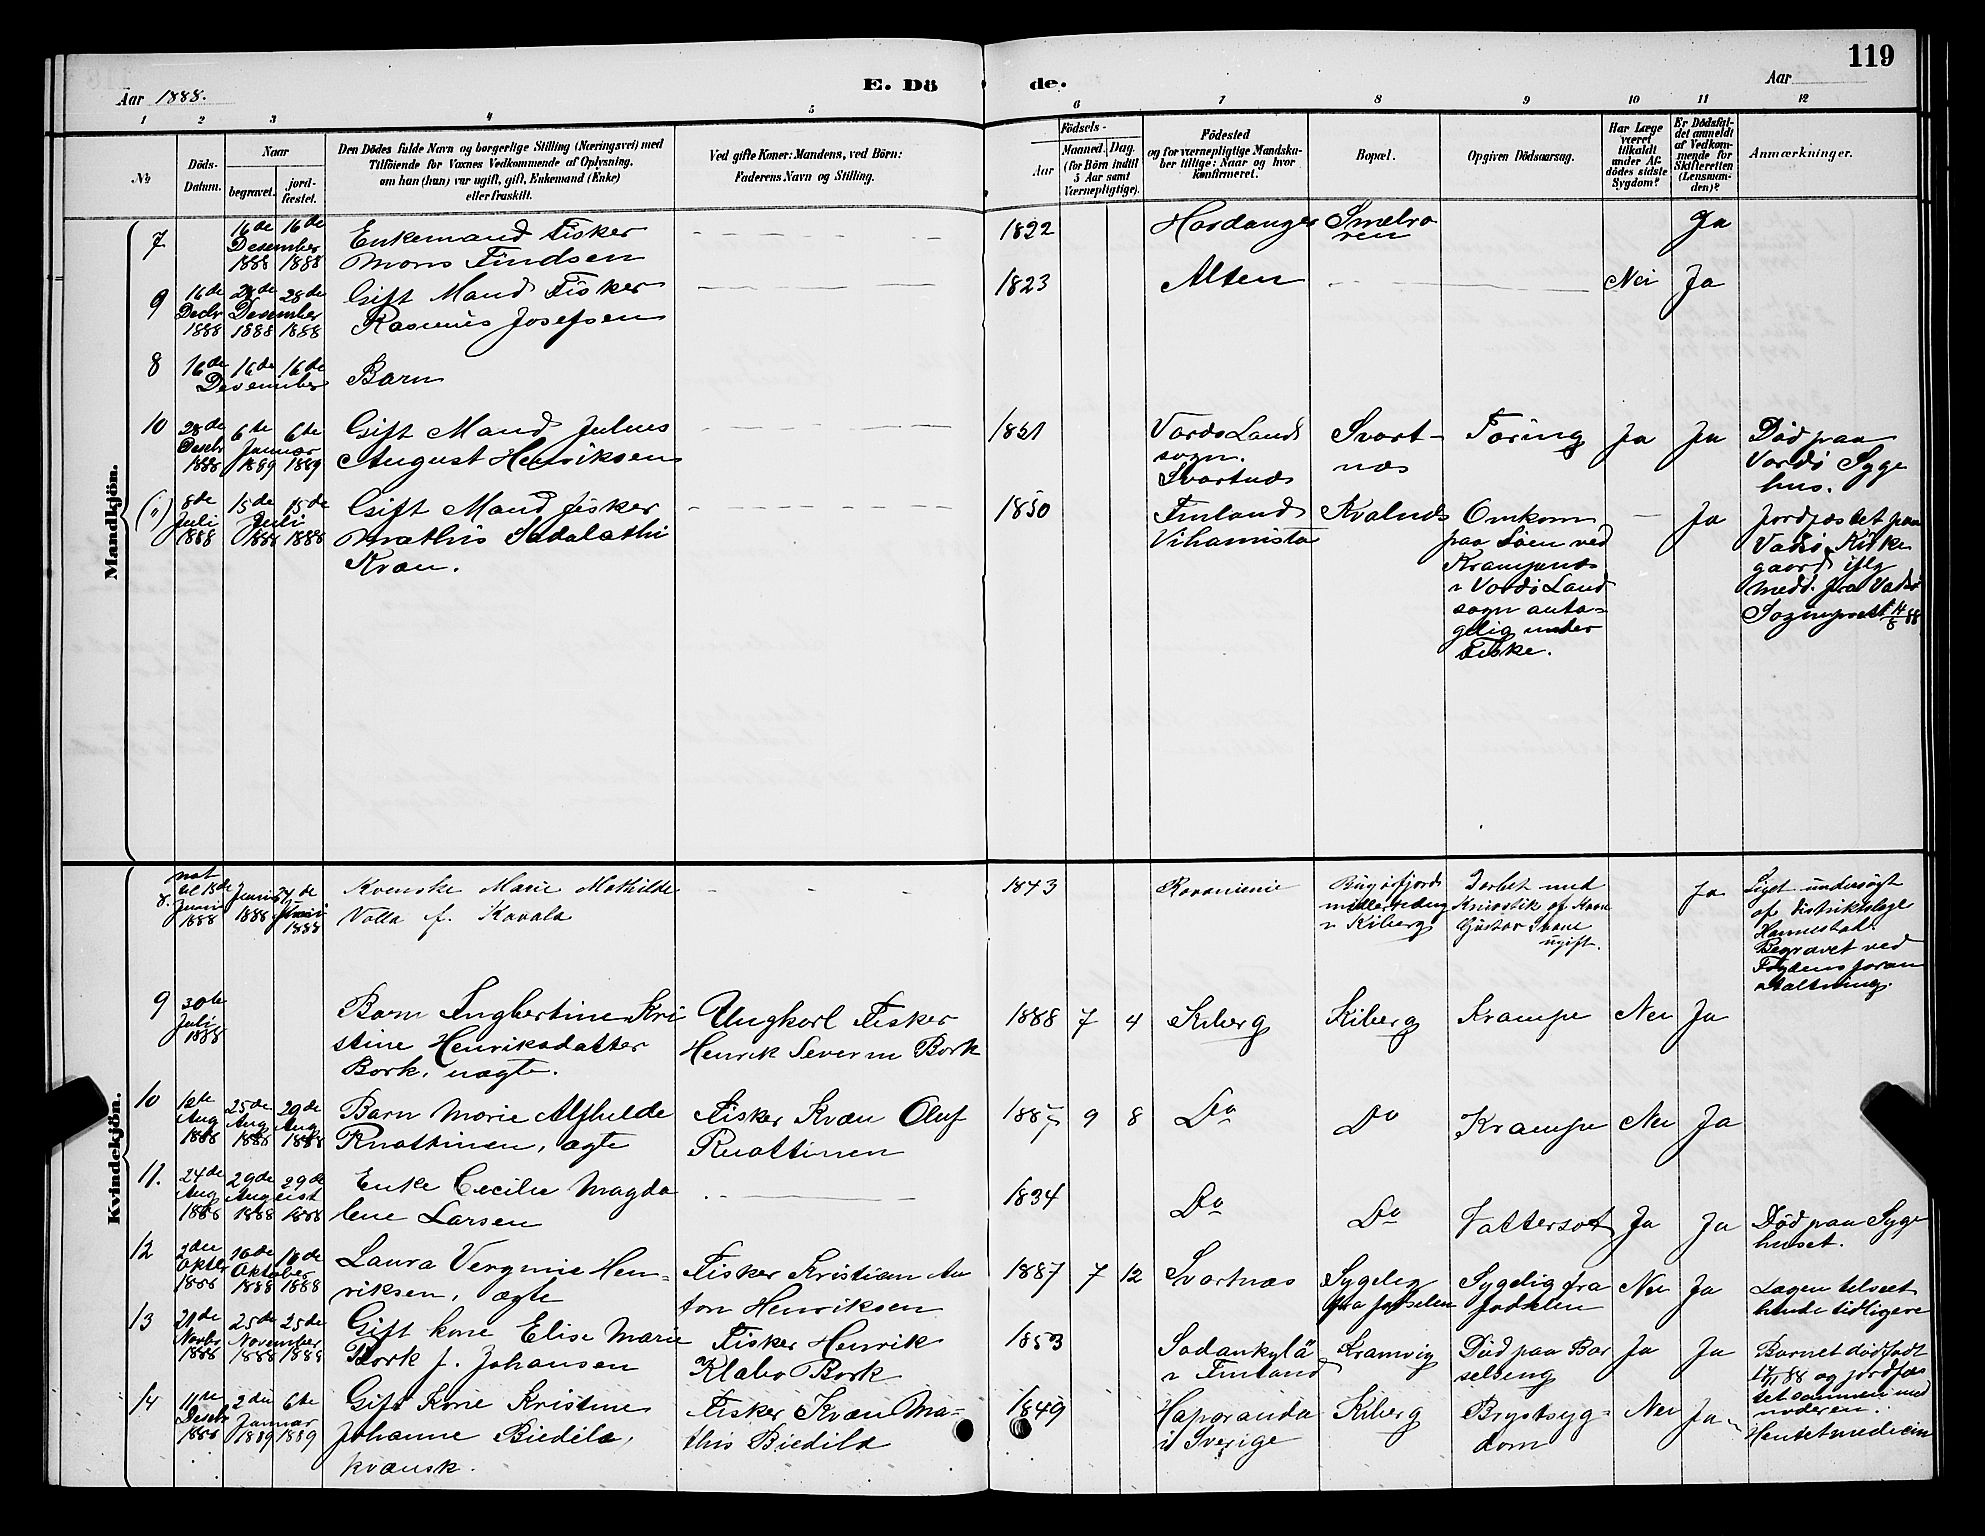 119
Aar 1888.
E. Dö
de.
Aar
1 2 3 4 5 6 7 8 9 10 11 12
№
Döds-Datum.
Naar
begravet.
jord-fæstet.
Den Dödes fulde Navn og borgerlige Stilling (Næringsvei) med
Tilföiende for Voxnes Vedkommende af Oplysning,
om han (hun) var ugift, gift, Enkemand (Enke)
eller fraskilt.
Ved gifte Koner: Mandens, ved Börn:
Faderens Navn og Stilling.
Födsels-
Aar
Maaned. Dag.
(for Börn indtil
5 Aar samt
Værnepligtige).
Födested
og for værnepligtige Mandska-
ber tillige: Naar og hvor
Konfirmeret.
Bopæl.
Opgiven Dödsaarsag.
Har Læge
været
tilkaldt
under Af-
dödes sidste
Sygdom?
Er Dödsfal-
det anmeldt
af Vedkom-
mende for
Skifteretten
(Lensman-
den)?
Anmærkninger.
Mandkjön.
7 16de 16de Desember 1888 1888
Enkemand Fisker
Mons Findsen
1822 Hardanger Ja
9 16de Decbr 1888 28de 28de Desember 1888 1888
Gift Mand Fisker
Rasmus Josefsen
1823 Alten Nei Ja
8 16de 16de 16de Desember
Barn
10 28de Decbr 1888 6te 6te Januar 1889 1889
Gift Mand Julius
August Henriksen
1851
Vardø Land
sogn.
Svartnæs
Svart-
næs
Tæring Ja Ja
Død paa
Vardø Syge
hus.
8de Juli 1888 15de 15de Juli 1888 1888
Gift Mand fisker
Mathis Sadalathi
Kvæn.
1850
Finland
Kvalnæs
Omkom
paa Søen ved
Krampenæs
i Vardø Land
sogn anta-
gelig under
Fiske.
Ja
Jordfæstet paa
Vadsø Kirke
gaard iflg
medd. fra Vadsø
Sogneprest
Kvindekjön.
8. nat til 18de Juni 1888 Juni 1888 Juni 1888
Kvenske Marie Mathilde
Volla f. Kavala
1843
Bugøfjord
midlertidig
i Kiberg
Dræbt med
Knivstik af
Gustav
ugift.
Ja
Liget undersøgt
af Distriktslæge
Begravet ved
Fogdens foran
staltning.
9 30te Juli 1888
Barn Ingbertine Kri
stine Henriksdatter
Bork, uægte.
Ungkarl Fisker
Henrik Severin Bork
1888 7 4 Kiberg Kiberg Krampe Nei Ja
10 12te Aug 1888 25de Aug 1888 29de Aug 1888
Barn Marie Alfhilde
Ruottinen, ægte
Fisker Kvæn Oluf
Ruottinen
1887 9 8 Do Do Krampe Nei Ja
11. 24de Aug 1888 29de 29de August 1888 1888
Enke Cecilie Magda
lene Larsen
1834 Do Do Vattersot Ja Ja
Død paa Syge
huset.
12 2den Oktbr 1888 16de 16de Oktober 1888 1888
Laura Verginie Hen-
riksen, ægte
Fisker Kristian An
ton Henriksen
1887 7 12 Svartnæs
Sygelig
fra fødselen
Sygelig fra
fødselen
Nei Ja
Lægen tilseet
hende tidligere
13 21de Novbr 1888 25de 25de November 1888 1888
Gift kone Elise Marie
Bork f. Johansen
Fisker Henrik
Klabo Bork
1853
Sodankylä
i Finland
Kramvig
Død paa Bar
selseng
Ja Ja
Barnet dødfødt
88 og jordfæs
tet sammen med
moderen.
14 11te Decbr 1888 2den 6te Januar 1889 1889
Gift Kone Kristine
Johanne Biedila,
kvænsk.
Fisker Kvæn Ma-
this Biedila
1849
Haparanda
i Sverige
Kiberg
Brystsyg-
dom
Nei Ja
Hentet medicin